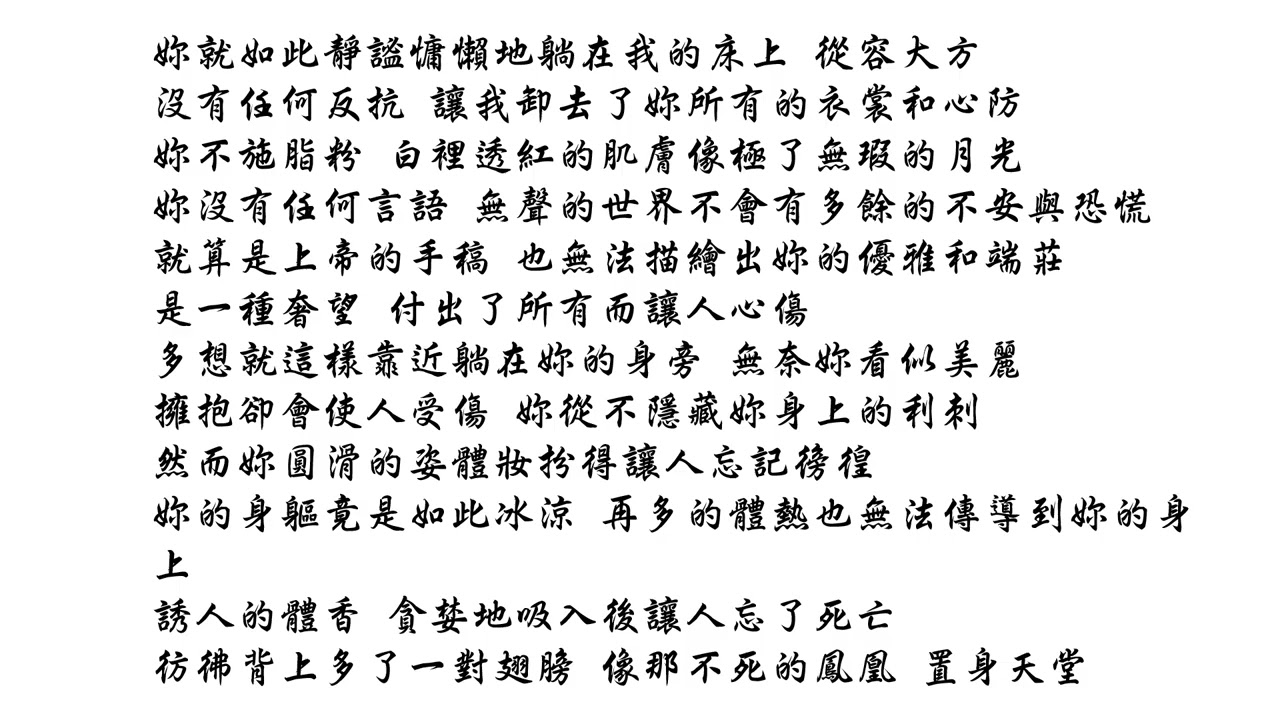 妳就如此靜謐慵懶地躺在我的床上 從容大方
沒有任何反抗 讓我卸去了妳所有的衣裳和心防
妳不施脂粉 白裡透紅的肌膚像極了無瑕的月光
妳沒有任何言語 無聲的世界不會有多餘的不安與恐慌
就算是上帝的手稿 也無法描繪出妳的優雅和端莊
是一種奢望 付出了所有而讓人心傷
多想就這樣靠近躺在妳的身旁 無奈妳看似美麗
擁抱卻會使人受傷 妳從不隱藏妳身上的利刺
然而妳圓滑的姿體妝扮得讓人忘記徬徨
妳的身軀竟是如此冰涼 再多的體熱也無法傳導到妳的身
上
誘人的體香 貪婪地吸入後讓人忘了死亡
彷彿背上多了一對翅膀 像那不死的鳳凰 置身天堂